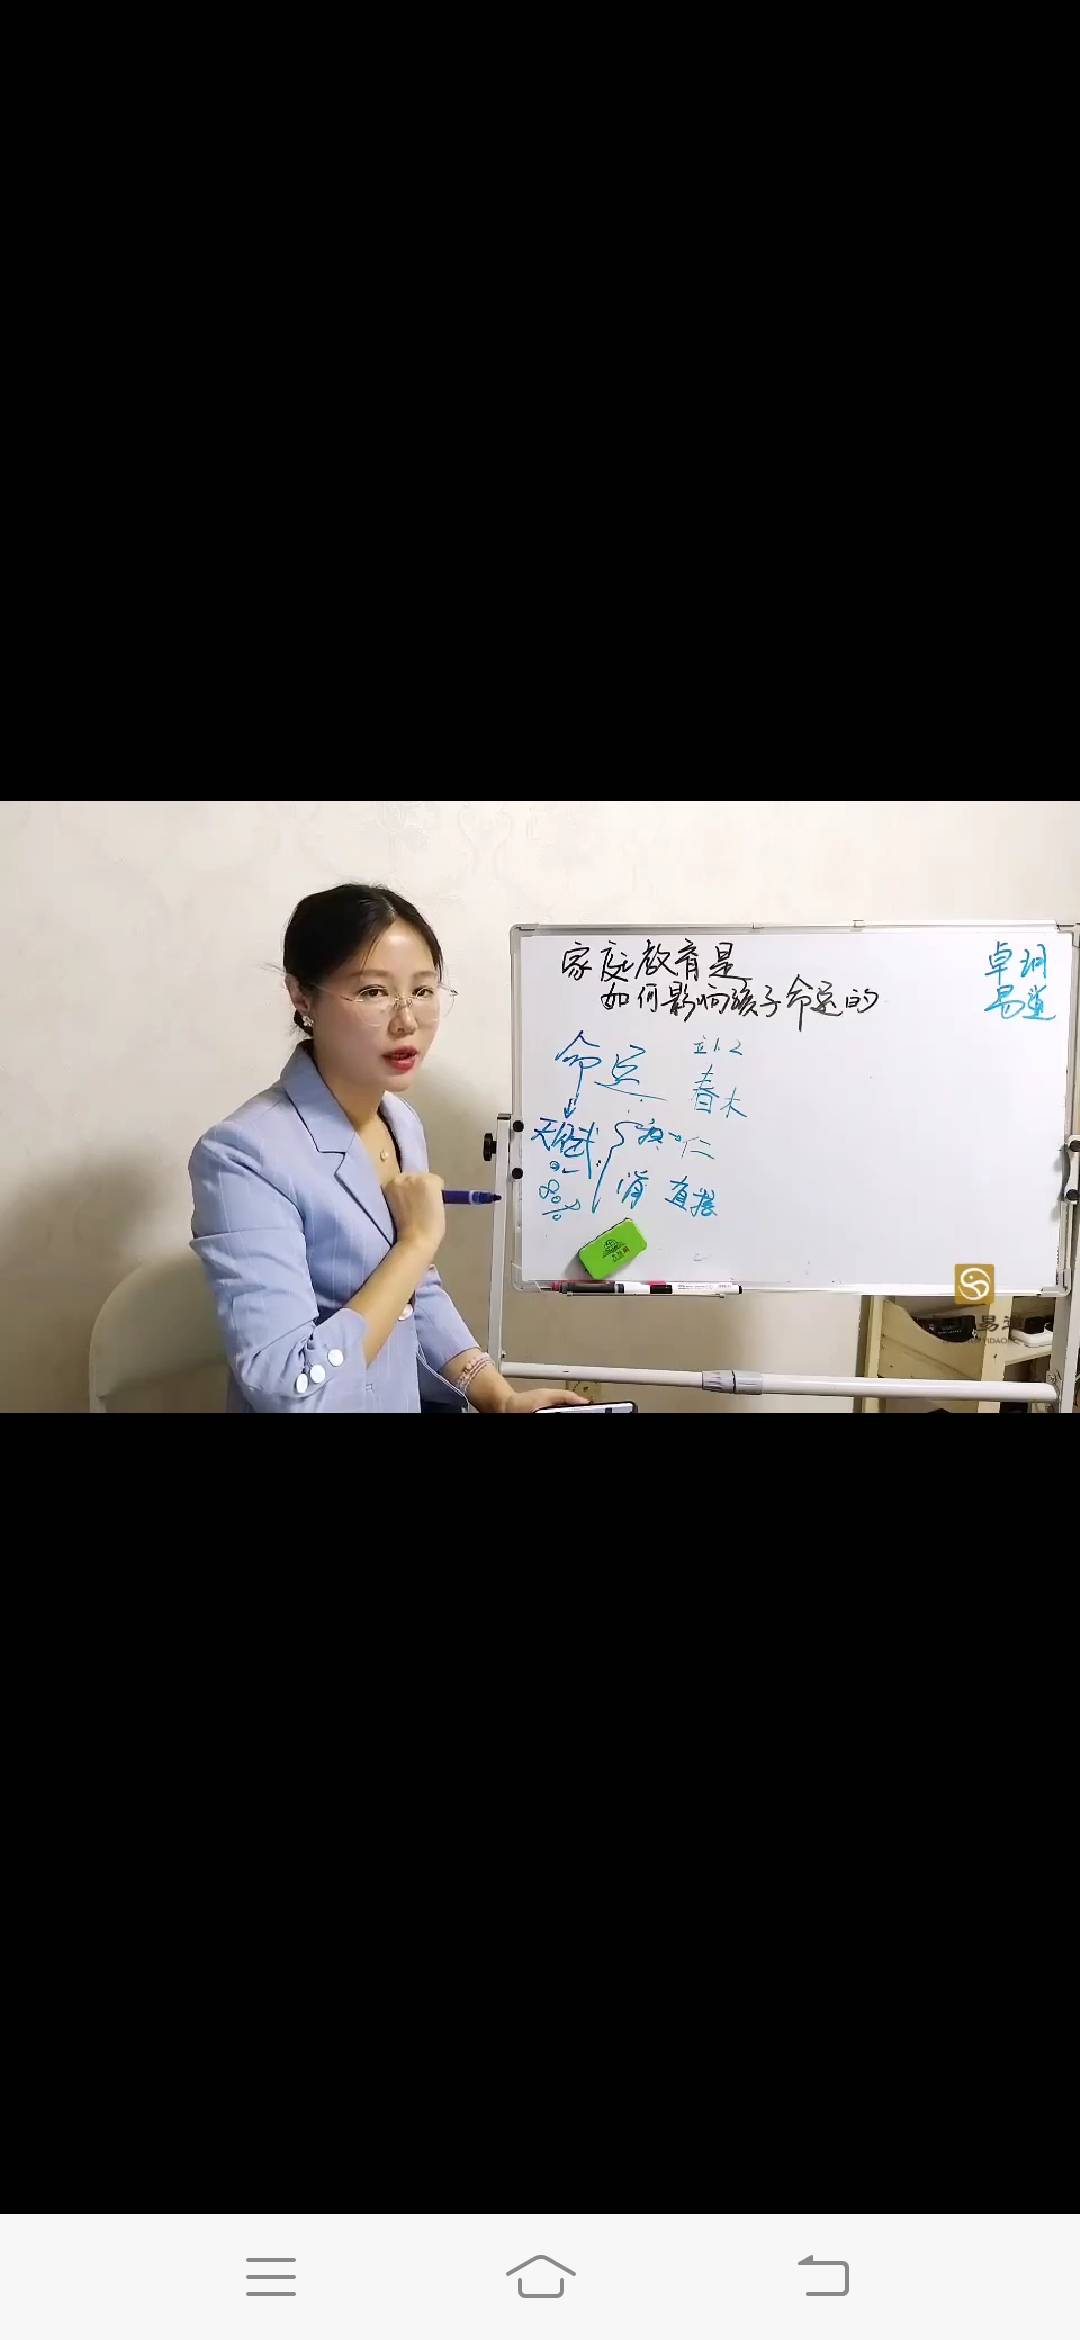 家庭教育是
如何影响孩子命运的
卓玥
易道
命运
春木
天赋
仁
直接